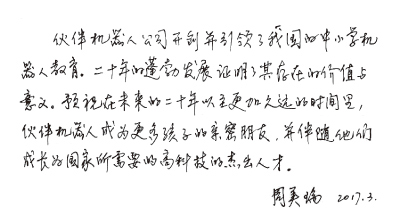 伙伴机器人公司开创并引领了我国的中小学机
器人教育。二十年的蓬勃发展证明了其存在的价值与
意义。预祝在未来的二十年以至更加久远的时间里，
伙伴机器人成为更多孩子的亲密朋友，并伴随他们
成长为国家所需要的高科技的杰出人才。
周美瑞 2017.3.